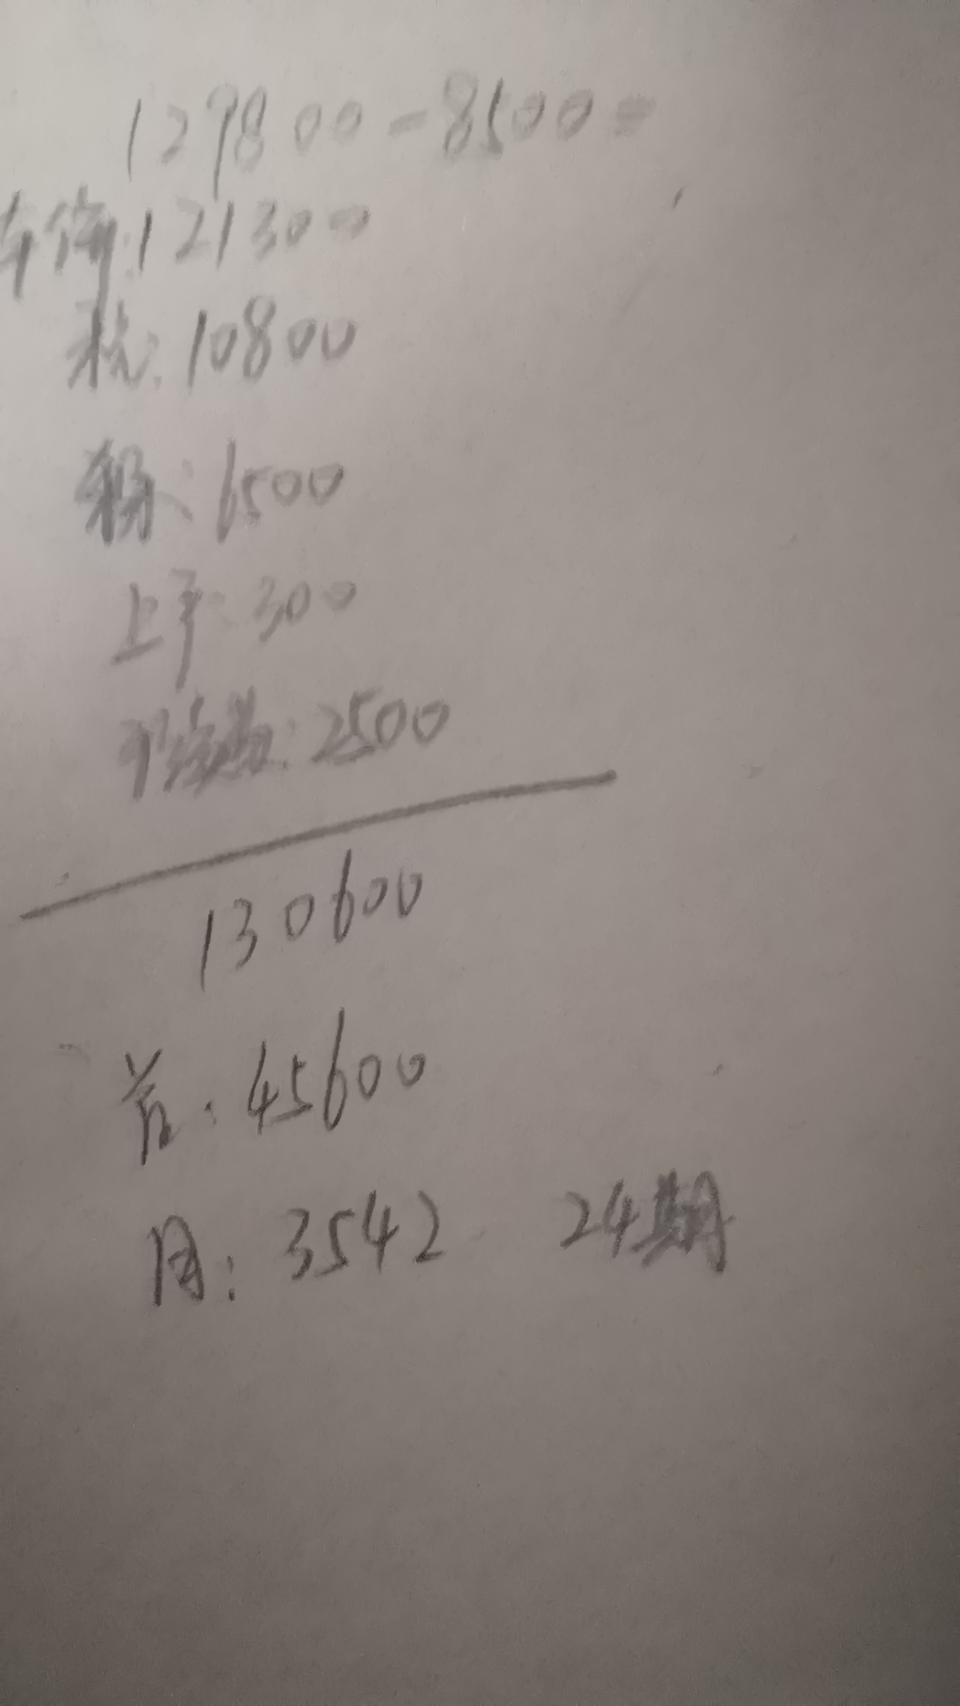 129800-8500=
车价:121300
税:10800
:6500
上户:300
:2500
130600
首:45600
月:3542 24期